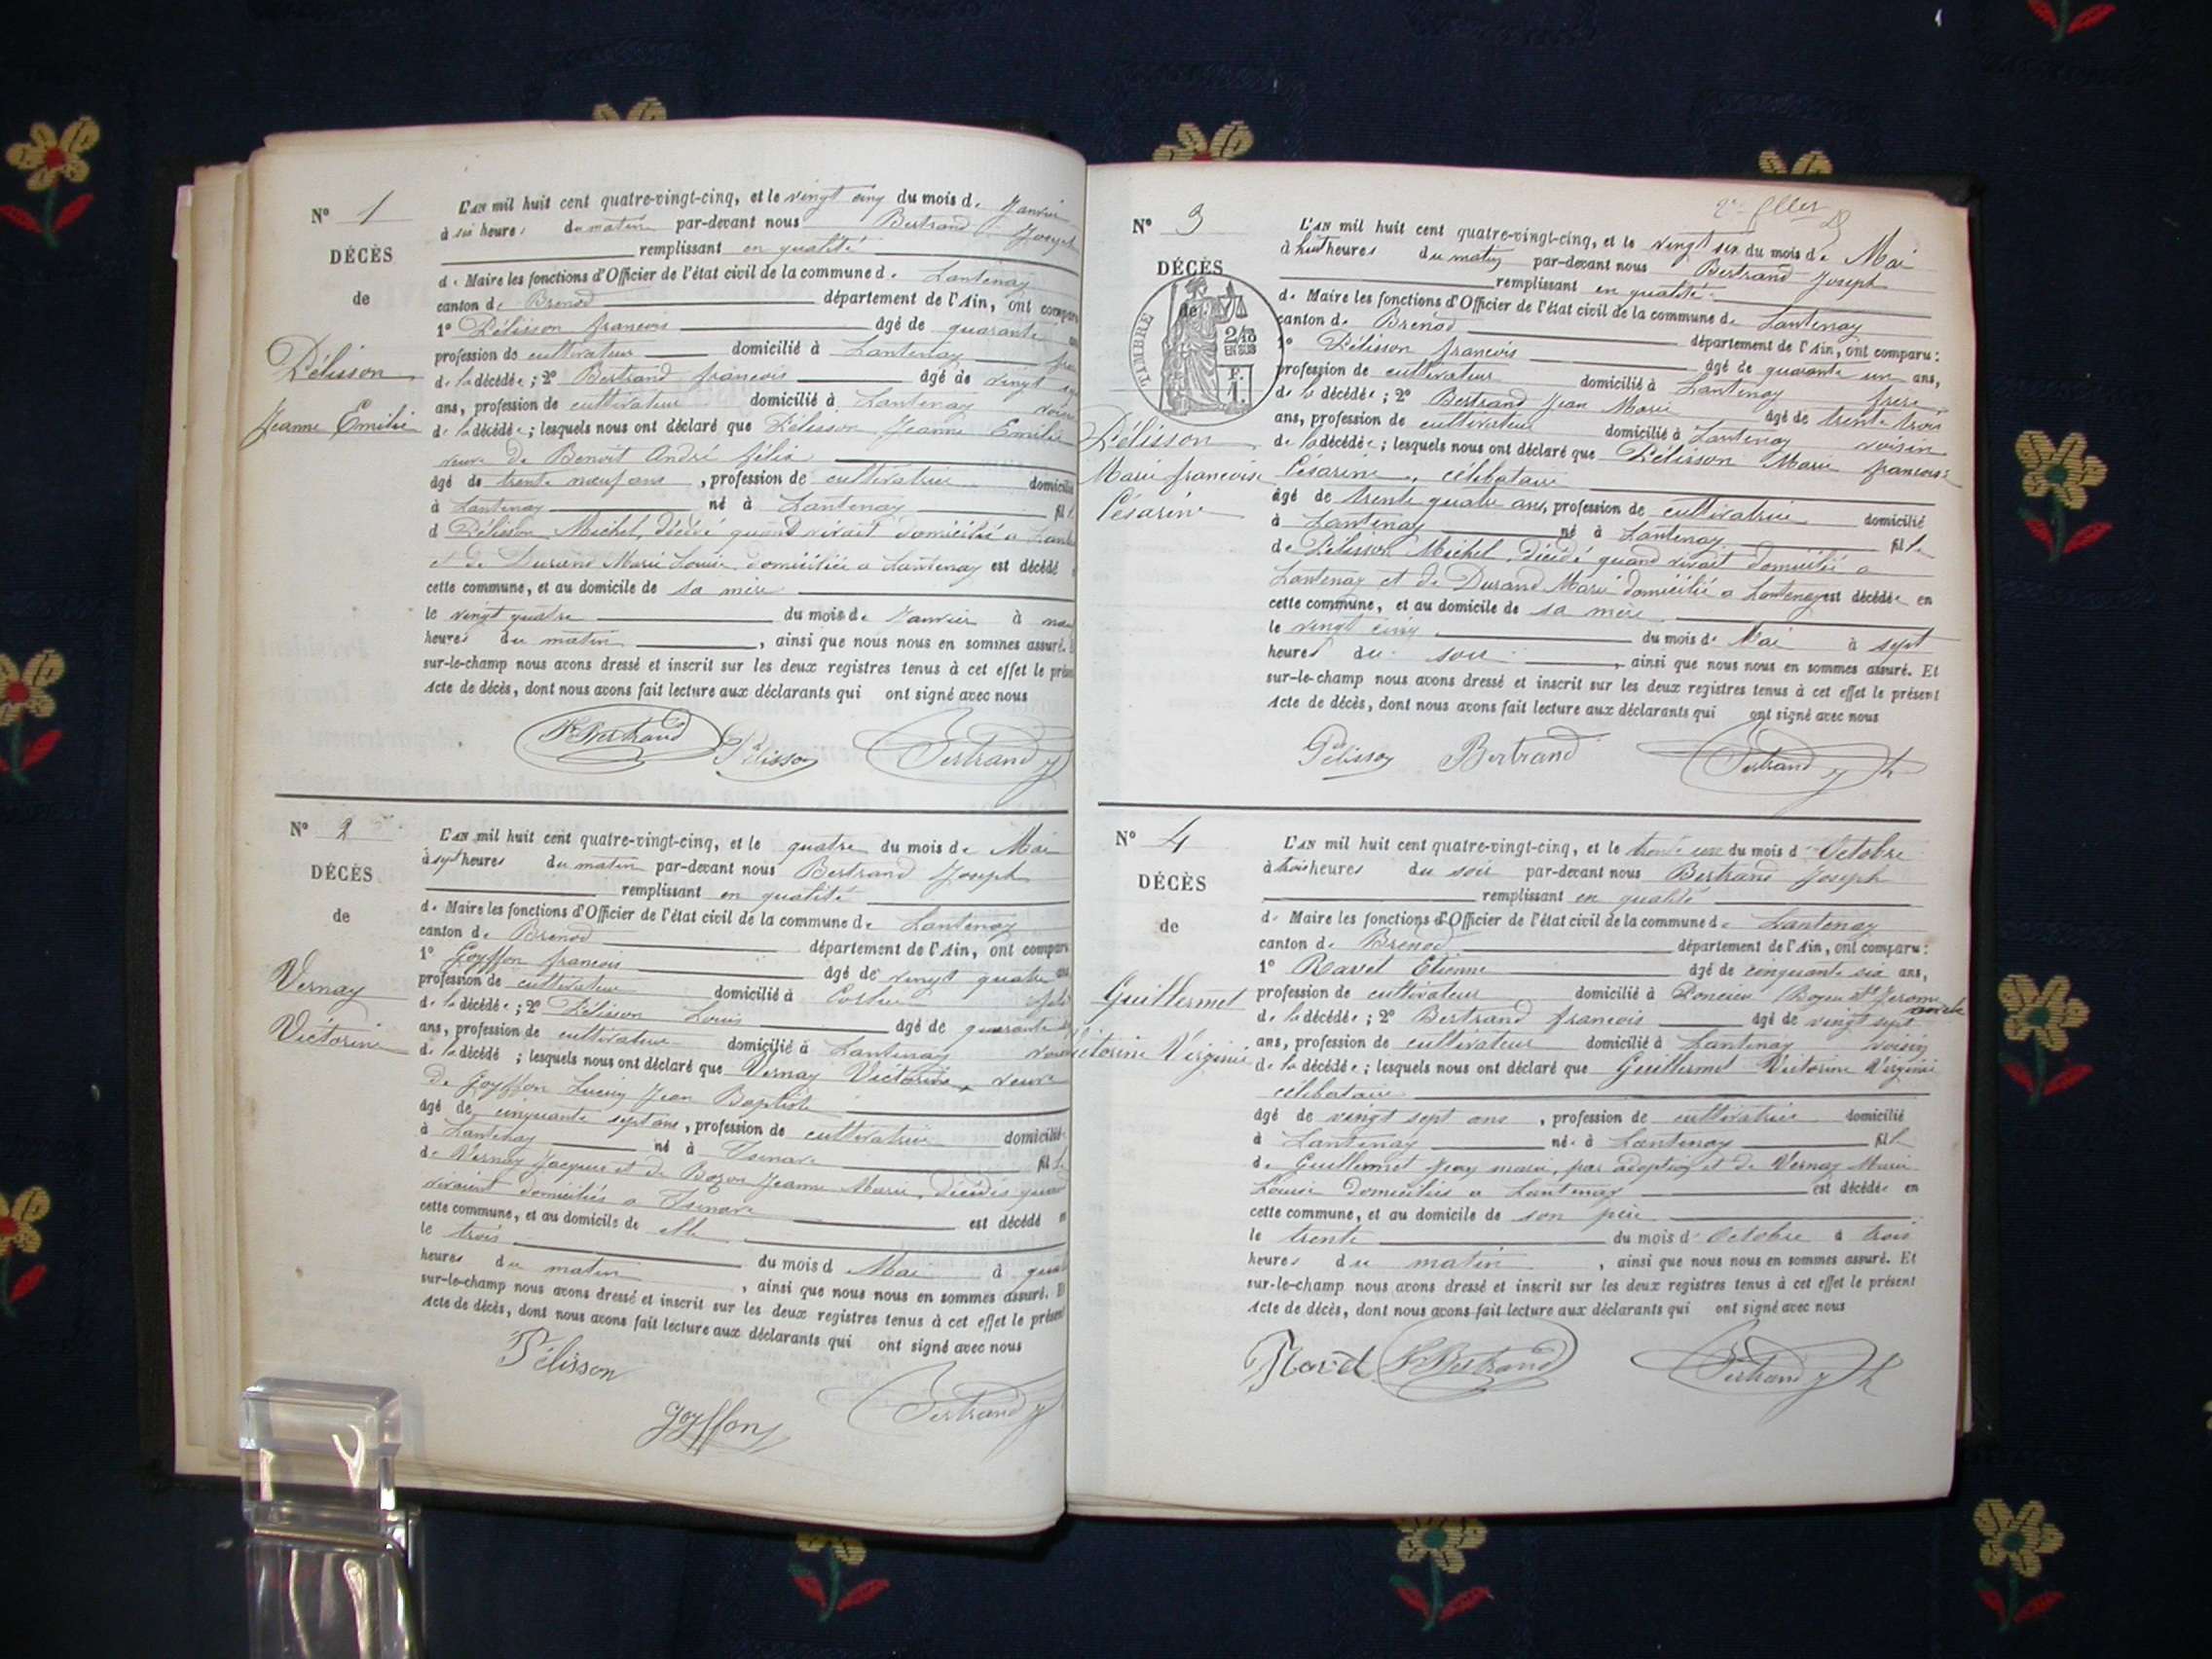 N° 1
DÉCÈS
de
Pélisson
Jeanne Emilie
L'AN mil huit cent quatre-vingt-cinq, et le vingt cinq du mois de Janvier
à six heures du matin par-devant nous Bertrand Joseph
remplissant en qualité
de Maire les fonctions d'Officier de l'état civil de la commune de Lantenay
canton de Brenod département de l'Ain, ont comparu
1° Pélisson francois âgé de quarante
profession de cultivateur domicilié à Lantenay
de la décédée; 2° Bertrand francois âgé de vingt
ans, profession de cultivateur domicilié à Lantenay
de la décédée; lesquels nous ont déclaré que Pélisson Jeanne Emilie
veuve de Benoit André félix
âgé de trente neuf ans, profession de cultivatrice domicilié
à Lantenay né à Lantenay fille
d Pélisson Michel, décédé quand vivait domicilié a
et de Durand Marie Louise domiciliée a Lantenay est décédé
cette commune, et au domicile de sa mère
le vingt quatre du mois de Janvier à
heures du matin, ainsi que nous nous en sommes assuré.
sur-le-champ nous avons dressé et inscrit sur les deux registres tenus à cet effet le présent
Acte de décès, dont nous avons fait lecture aux déclarants qui ont signé avec nous
Fs Bertrand Pélisson Bertrand J
N° 2
DÉCÈS
de
Vernay
Victorine
L'AN mil huit cent quatre-vingt-cinq, et le quatre du mois de Mai
à sept heures du matin par-devant nous Bertrand Joseph
remplissant en qualité
de Maire les fonctions d'Officier de l'état civil de la commune de Lantenay
canton de Brenod département de l'Ain, ont comparu
1° Goyffon francois âgé de vingt quatre ans
profession de cultivateur domicilié à
de la décédée; 2° Pélisson Louis âgé de quarante
ans, profession de cultivateur domicilié à Lantenay
de la décédé; lesquels nous ont déclaré que Vernay Victorine, veuve
de Goyffon Lucien Jean Baptiste
âgé de cinquante sept ans, profession de cultivatrice domicilié
à Lantenay né à Izenave fille
de Vernay Jacques et de Bozon Jeanne Marie, décédés quand
vivaient domiciliés a Izenave est décédé
cette commune, et au domicile de elle
le trois du mois d Mai à
heures du matin, ainsi que nous nous en sommes assuré.
sur-le-champ nous avons dressé et inscrit sur les deux registres tenus à cet effet le présent
Acte de décès, dont nous avons fait lecture aux déclarants qui ont signé avec nous
Pélisson
Goyffon Bertrand J
N° 3
DÉCÈS
de
TIMBRE
2/10
EN SUS
Pélisson
Marie francoise
Césarine
L'AN mil huit cent quatre-vingt-cinq, et le vingt six du mois de Mai
à huit heures du matin par-devant nous Bertrand Joseph
remplissant en qualité
de Maire les fonctions d'Officier de l'état civil de la commune de Lantenay
canton de Brenod département de l'Ain, ont comparu:
1° Pélisson francois âgé de quarante un ans,
profession de cultivateur domicilié à Lantenay frere
de la décédée; 2° Bertrand Jean Marie âgé de trente trois
ans, profession de cultivateur domicilié à Lantenay voisin
de la décédée; lesquels nous ont déclaré que Pélisson Marie francoise
Césarine, célibataire
âgé de trente quatre ans, profession de cultivatrice domicilié
à Lantenay né à Lantenay fille
de Pélisson Michel, décédé quand vivait domicilié a
Lantenay et de Durand Marie domiciliée a Lantenay est décédée en
cette commune, et au domicile de sa mère
le vingt cinq du mois de Mai à sept
heures du soir, ainsi que nous nous en sommes assuré. Et
sur-le-champ nous avons dressé et inscrit sur les deux registres tenus à cet effet le présent
Acte de décès, dont nous avons fait lecture aux déclarants qui ont signé avec nous
Pélisson Bertrand Bertrand J h
N° 4
DÉCÈS
de
Guillermet
Victorine Virginie
L'AN mil huit cent quatre-vingt-cinq, et le trente un du mois d Octobre
à trois heures du soir par-devant nous Bertrand Joseph
remplissant en qualité
de Maire les fonctions d'Officier de l'état civil de la commune de Lantenay
canton de Brenod département de l'Ain, ont comparu:
1° Ravet Etienne âgé de cinquante six ans,
profession de cultivateur domicilié à Poncieu (Boyeu St Jerome oncle
de la décédée; 2° Bertrand francois âgé de vingt sept
ans, profession de cultivateur domicilié à Lantenay voisin
de la décédée; lesquels nous ont déclaré que Guillermet Victorine Virginie
célibataire
âgé de vingt sept ans, profession de cultivatrice domicilié
à Lantenay née à Lantenay fille
de Guillermet Jean marie, par adoption et de Vernay Marie
Louise domiciliés a Lantenay est décédée en
cette commune, et au domicile de son père
le trente du mois d Octobre à trois
heures du matin, ainsi que nous nous en sommes assuré. Et
sur-le-champ nous avons dressé et inscrit sur les deux registres tenus à cet effet le présent
Acte de décès, dont nous avons fait lecture aux déclarants qui ont signé avec nous
Fs Bertrand Bertrand J h